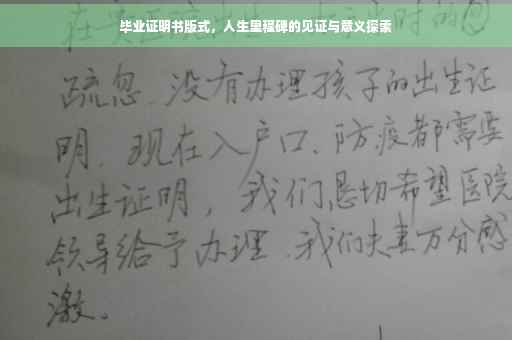 毕业证明书版式，人生里程碑的见证与意义探索
疏忽、没有办理孩子的出生证
明、现在入户口、防疫都需要
出生证明，我们恳切希望医院
领导给予办理、我们夫妻万分感
激。